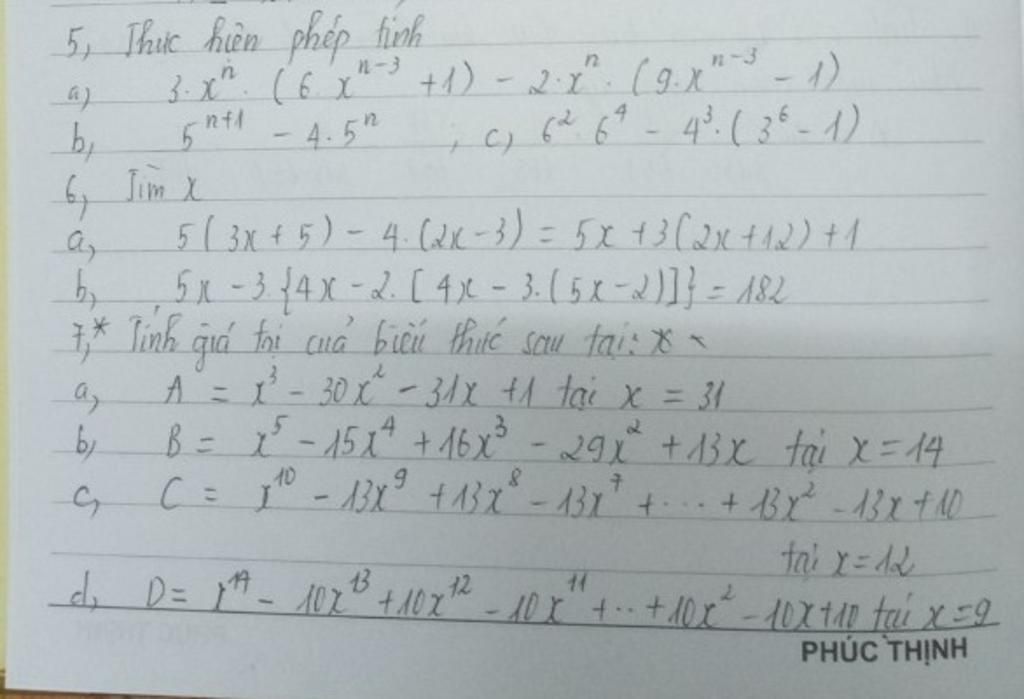 5, Thực hiện phép tính
a) 3.xⁿ. (6.xⁿ⁻³ +1) - 2.xⁿ. (9.xⁿ⁻³ - 1)
b, 5ⁿ⁺¹ - 4.5ⁿ ; c, 6².6⁴ - 4³.(3⁶ - 1)
6, Tìm x
a, 5(3x + 5) - 4.(2x - 3) = 5x + 3(2x + 12) + 1
b, 5x - 3.{4x - 2.[4x - 3.(5x - 2)]} = 182
7,* Tính giá trị của biểu thức sau tại:
a, A = x³ - 30x² - 31x + 1 tại x = 31
b, B = x⁵ - 15x⁴ + 16x³ - 29x² + 13x tại x = 14
c, C = x¹⁰ - 13x⁹ + 13x⁸ - 13x⁷ + ... + 13x² - 13x + 10
tại x = 12
d, D = x¹⁴ - 10x¹³ + 10x¹² - 10x¹¹ + ... + 10x² - 10x + 10 tại x = 9
PHÚC THỊNH